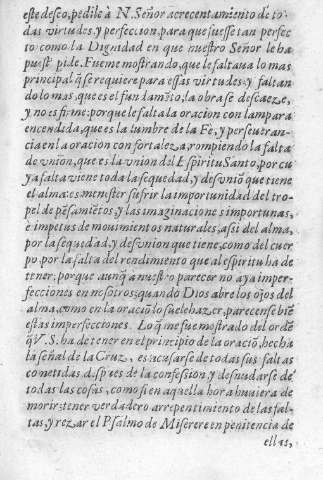 este deseo, pedile à N. Señor acrecentamiento de to-
das virtudes, y perfeccion, para que fuesse tan perfec
to como la Dignidad en que nuestro Señor le ha
puest pide. Fueme mostrando, que le faltaua lo mas
principal q̃ se requiere para essas virtudes: y faltan
do lo mas, que es el fundamẽto, la obra se descaeze,
y no es firme: porque le falta la oracion con lampara
encendida, que es la lumbre de la Fe, y perseueran-
cia en la oracion con fortaleza, rompiendo la falta
de vnion, que es la vnion del Espiritu Santo, por cu
ya falta viene toda la sequedad, y desvniõ que tiene
el alma: es menester sufrir la importunidad del tro-
pel de pẽsamiẽtos, y las imaginaciones importunas,
è impetus de mouimientos naturales, asi del alma,
por la sequedad, y desvnion que tiene, como del cuer
po, por la falta del rendimiento que al espiritu ha de
tener, porque aunq̃ a nuestro parecer no aya imper-
fecciones en nosotros: quando Dios abre los ojos del
alma, como en la oraciõ lo suele hazer, parecense biẽ
estas imperfecciones. Lo q̃ me fue mostrado del ordẽ
q̃ V. S. ha de tener en el principio de la oraciõ, hecha
la señal de la Cruz, es acusarse de todas sus faltas
cometidas, dspues de la confession, y desnudarse de
todas las cosas, como si en aquella hora huuiera de
morir: tener verdadero arrepentimiento de las fal-
tas, y rezar el Psalmo de Miserere en penitencia de
ellas,